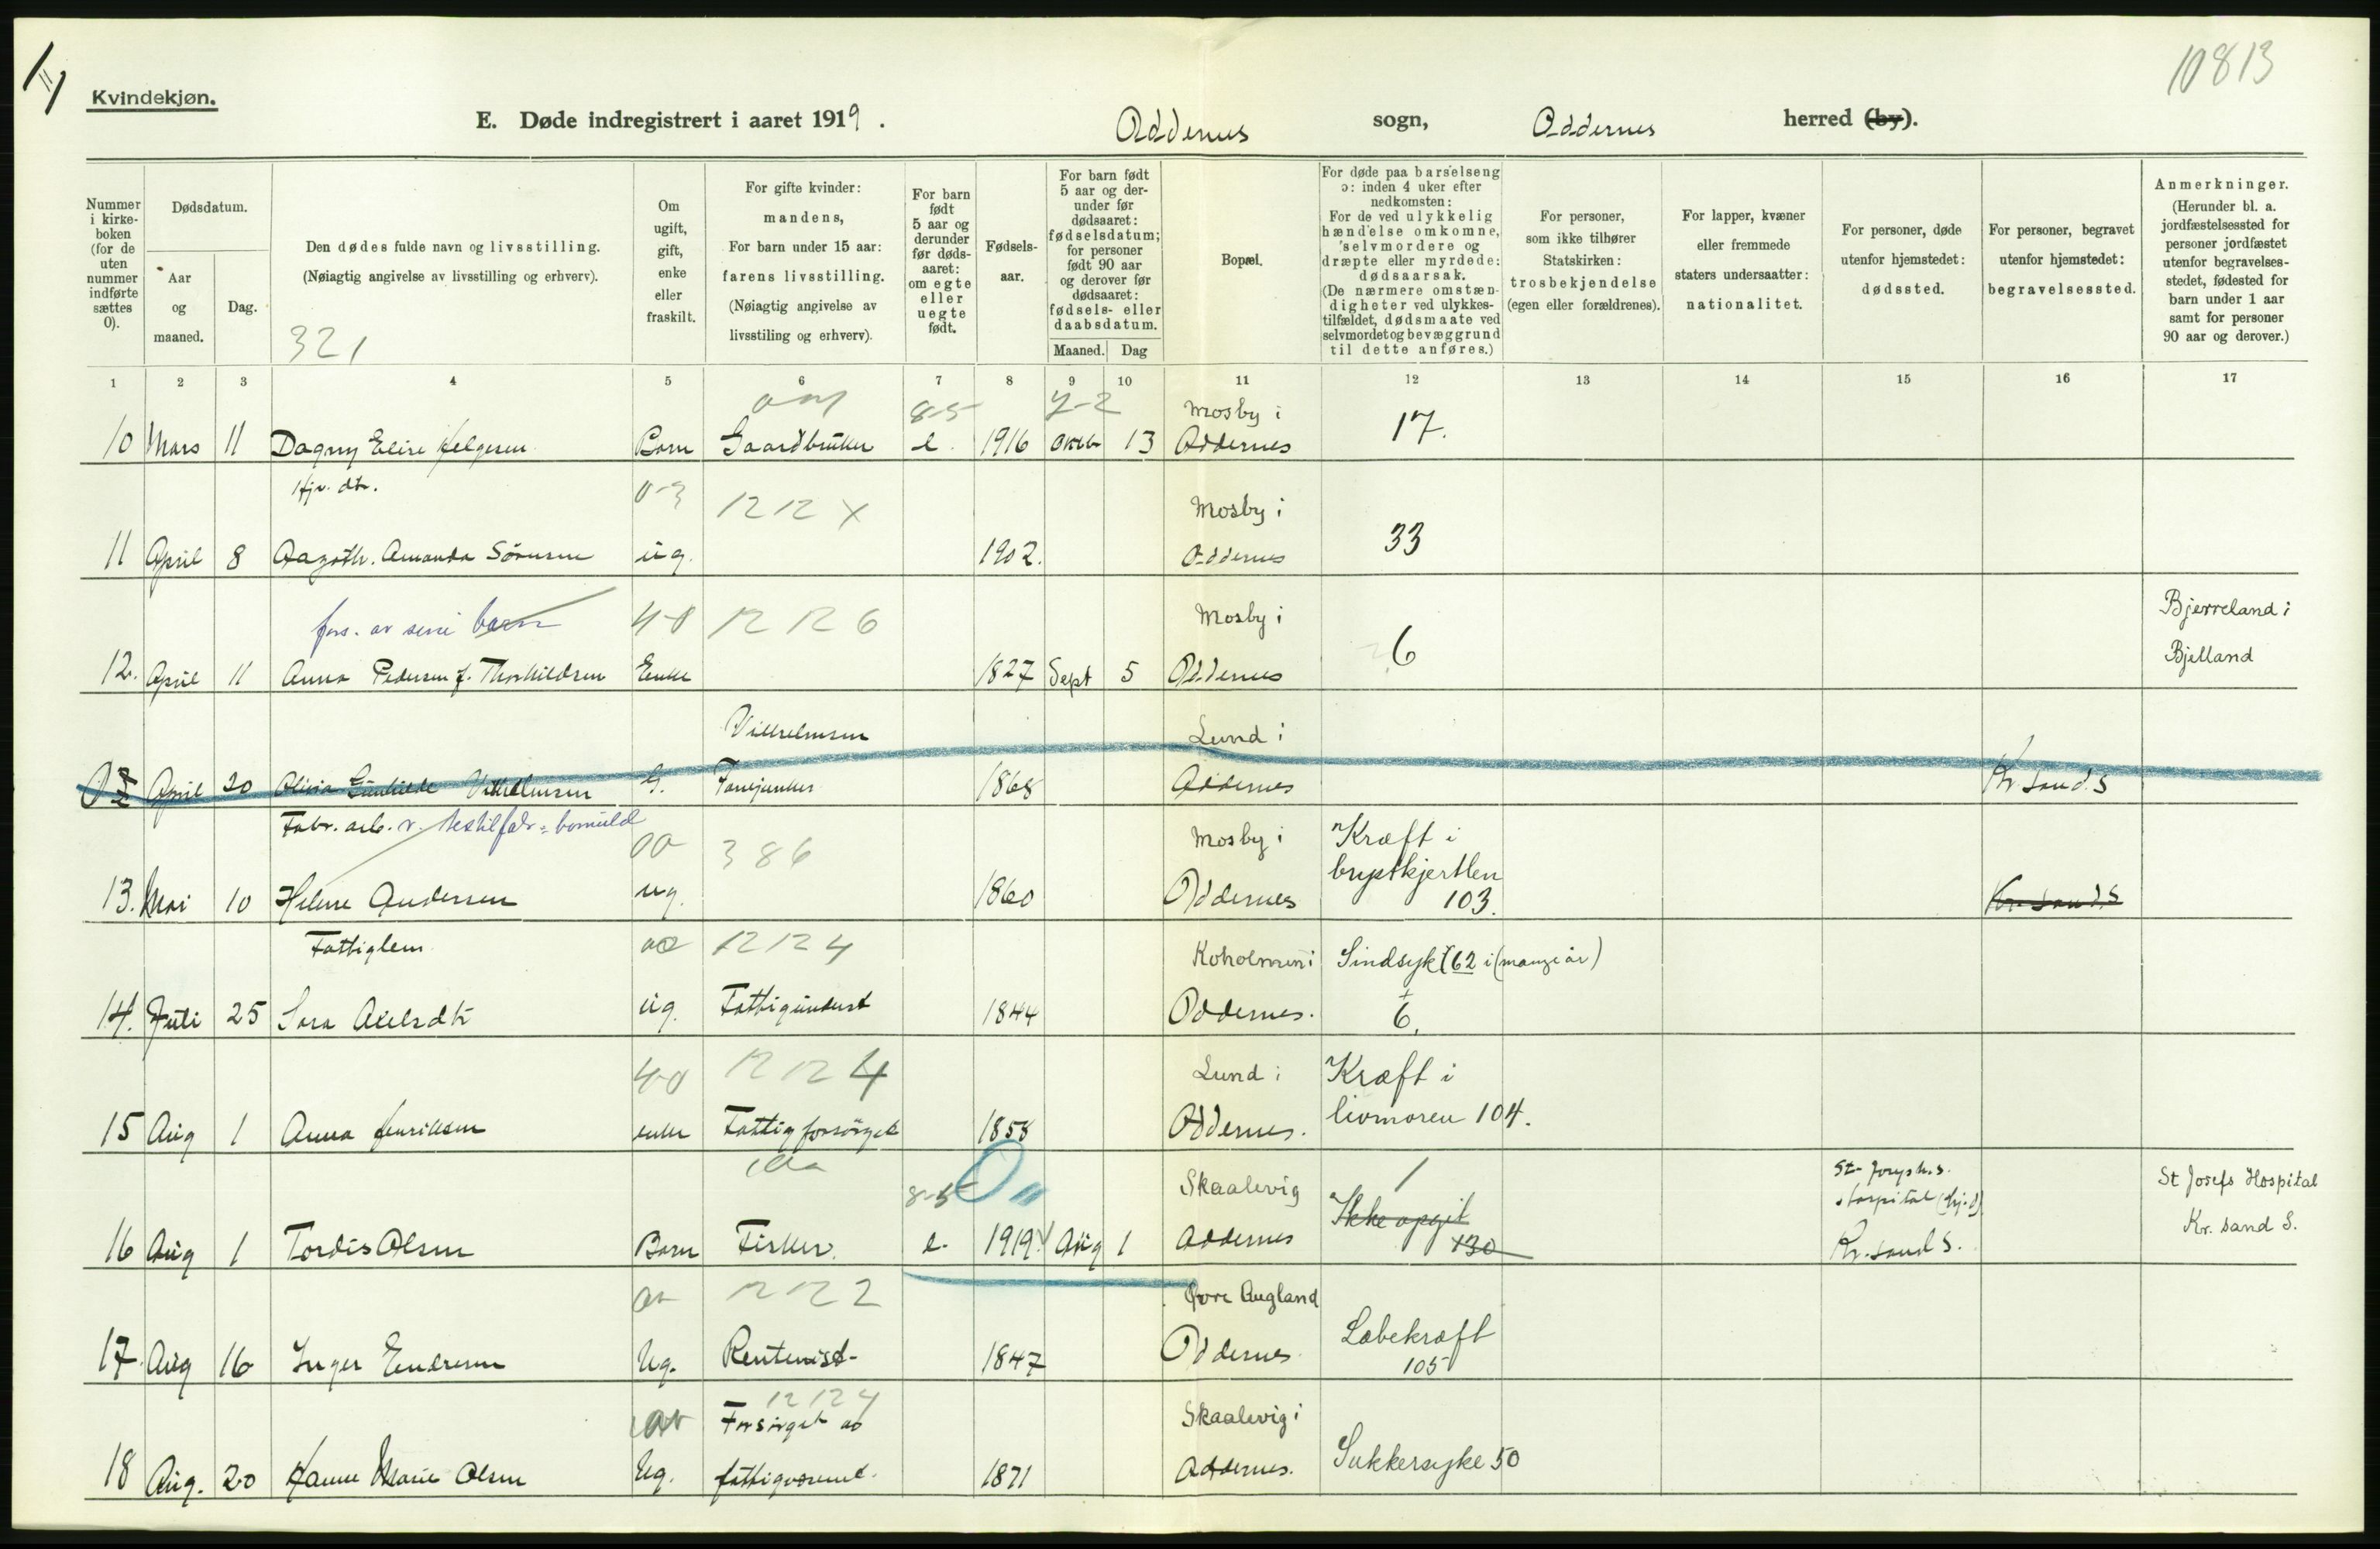 10813
Kvindekjøn.
E. Døde indregistrert i aaret 1919. Oddernes sogn, Oddernes herred (by).
Nummer i kirke-boken (for de uten nummer indførte sættes 0).
Dødsdatum.
Aar og maaned.
Dag.
Den dødes fulde navn og livsstilling.
(Nøiagtig angivelse av livsstilling og erhverv).
321
Om ugift, gift, enke eller fraskilt.
For gifte kvinder: mandens,
For barn under 15 aar: farens livsstilling.
(Nøiagtig angivelse av livsstiling og erhverv).
For barn født 5 aar og derunder før døds-aaret: om egte eller uegte født.
Fødsels-aar.
For barn født 5 aar og der-under før dødsaaret: fødselsdatum; for personer født 90 aar og derover før dødsaaret: fødsels- eller daabsdatum.
Maaned. Dag
Bopæl.
For døde paa barselseng ɔ: inden 4 uker efter nedkomsten:
For de ved ulykkelig hændelse omkomne, selvmordere og dræpte eller myrdede: dødsaarsak.
(De nærmere omstæn-digheter ved ulykkes-tilfældet, dødsmaate ved selvmordet og bevæggrund til dette anføres.)
For personer, som ikke tilhører Statskirken: trosbekjendelse (egen eller forældrenes).
For lapper, kvæner eller fremmede staters undersaatter: nationalitet.
For personer, døde utenfor hjemstedet: dødssted.
For personer, begravet utenfor hjemstedet: begravelsessted.
Anmerkninger.
(Herunder bl. a. jordfæstelsessted for personer jordfæstet utenfor begravelses-stedet, fødested for barn under 1 aar samt for personer 90 aar og derover.)
1 2 3 4 5 6 7 8 9 10 11 12 13 14 15 16 17
8-5 Mosby i
10 Mars 11 Dagny Elise Helgesen Barn Gaardbruker e. 1916 Oktb 13 Oddernes 17.
Hjv. dtr. 0-3 12 12 X Mosby i
11 April 8 Aagoth. Amanda Sörensen ug. 1902. Oddernes 33
fors. av sine barn 4-0 12 12 6 Mosby i Bjerreland i
12. April 11 Anna Pedersen f. Thorkildsen Enke 1827 Sept 5 Oddernes 6 Bjelland
Vilhelmsen Lund i
April 20 Olivia Gunhilde Vilhelmsen G. Fanejunker 1868 Oddernes Kr.sand.S
Fabr. arb. v. tekstilfabr = bomuld 386 Mosby i Kræft i brystkjertlen
13. Mai 10 Helene Andersen ug. 1860 Oddernes 103. Kr.sand.S
Fattiglem 12 12 4 Koholmen i Sindsyk 62 i (mange år)
14. Juli 25 Sara Axelsdtr ug. Fattigunderst 1844 Oddernes. 6.
4-0 12 12 4 Lund i Kræft i
15 Aug 1 Anna Henriksen enke Fattigforsörget 1858 Oddernes. livmoren 104.
8-5 0 Skaalevig 1 St. Josephs. Hospital St Josefs Hospital
16 Aug 1 Tordis Olsen Barn Fisker. e. 1919 Aug 1 Oddernes Ikke opgit 130 Kr.sand S. Kr. sand S.
12 12 2 Övre Augland Læbekræft
17. Aug 16 Inger Endresen Ug. Rentenist 1847 Oddernes 105
12 12 4 Forsörget av Skaalevig i
18 Aug. 20 Hanne Marie Olsen Ug. fattigvæsenet. 1871 Oddernes. Sukkersyke 50